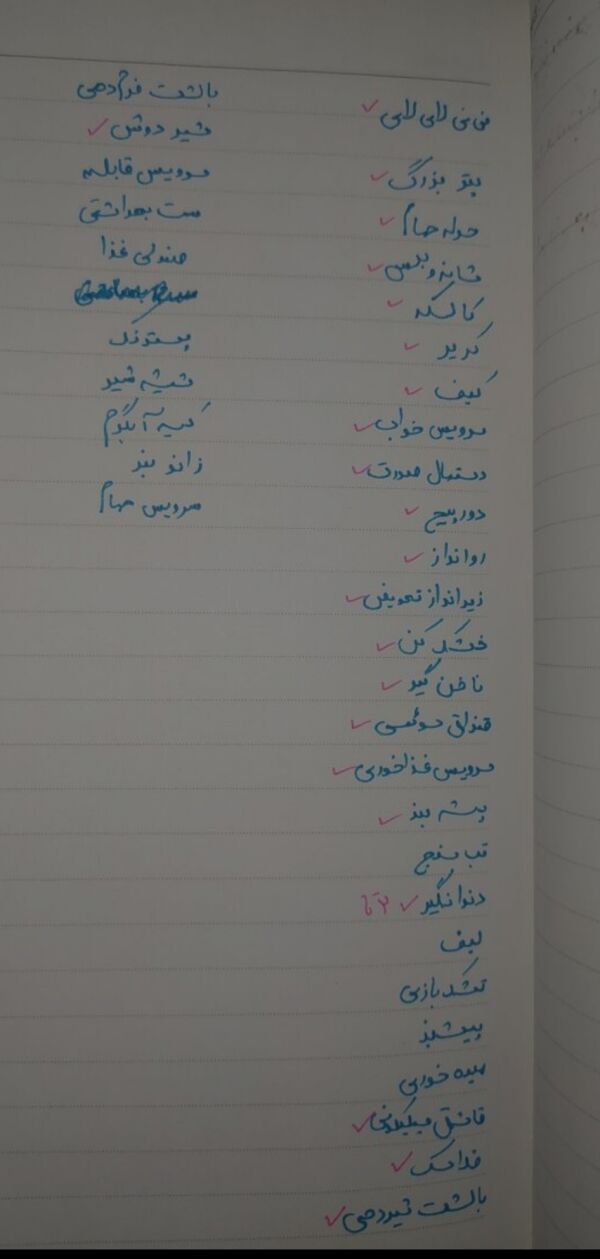 نی نی لای لای ✓
پتو بزرگ ✓
حوله حمام ✓
شانه و برس ✓
کالسکه ✓
کریر ✓
کیف ✓
سرویس خواب ✓
دستمال مرطوب ✓
دورپیچ ✓
روانداز ✓
زیرانداز تعویض ✓
خشک کن ✓
ناخن گیر ✓
صندلی موئسی ✓
سرویس غذاخوری ✓
پشه بند ✓
تب سنج
دندانگیر ✓ ۲ تا
لیف
تشک بازی
پیشبند
میوه خوری
قاشق سیلیکونی ✓
فلاسک ✓
بالشت شیردهی ✓
بالشت فرم دهی
شیر دوش ✓
سرویس قابلمه
ست بهداشتی
صندلی غذا
پستونک
شیشه شیر
کیسه آبگرم
زانو بند
سرویس حمام